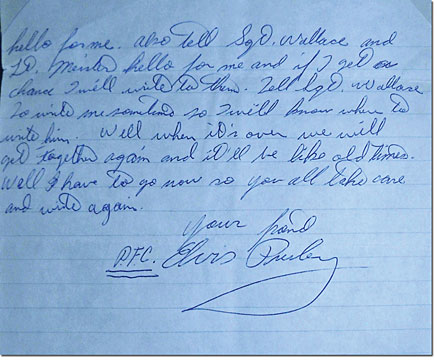 hello for me. also tell Sgt. Wallace and
Lt. Meister hello for me and if I get a
chance I will write to them. Tell Sgt. Wallace
to write me sometime so I will know where to
write him. Well when it's over we will
get together again and it'll be like old times.
Well I have to go now so you all take care
and write again.
your friend
P.F.C. Elvis Presley